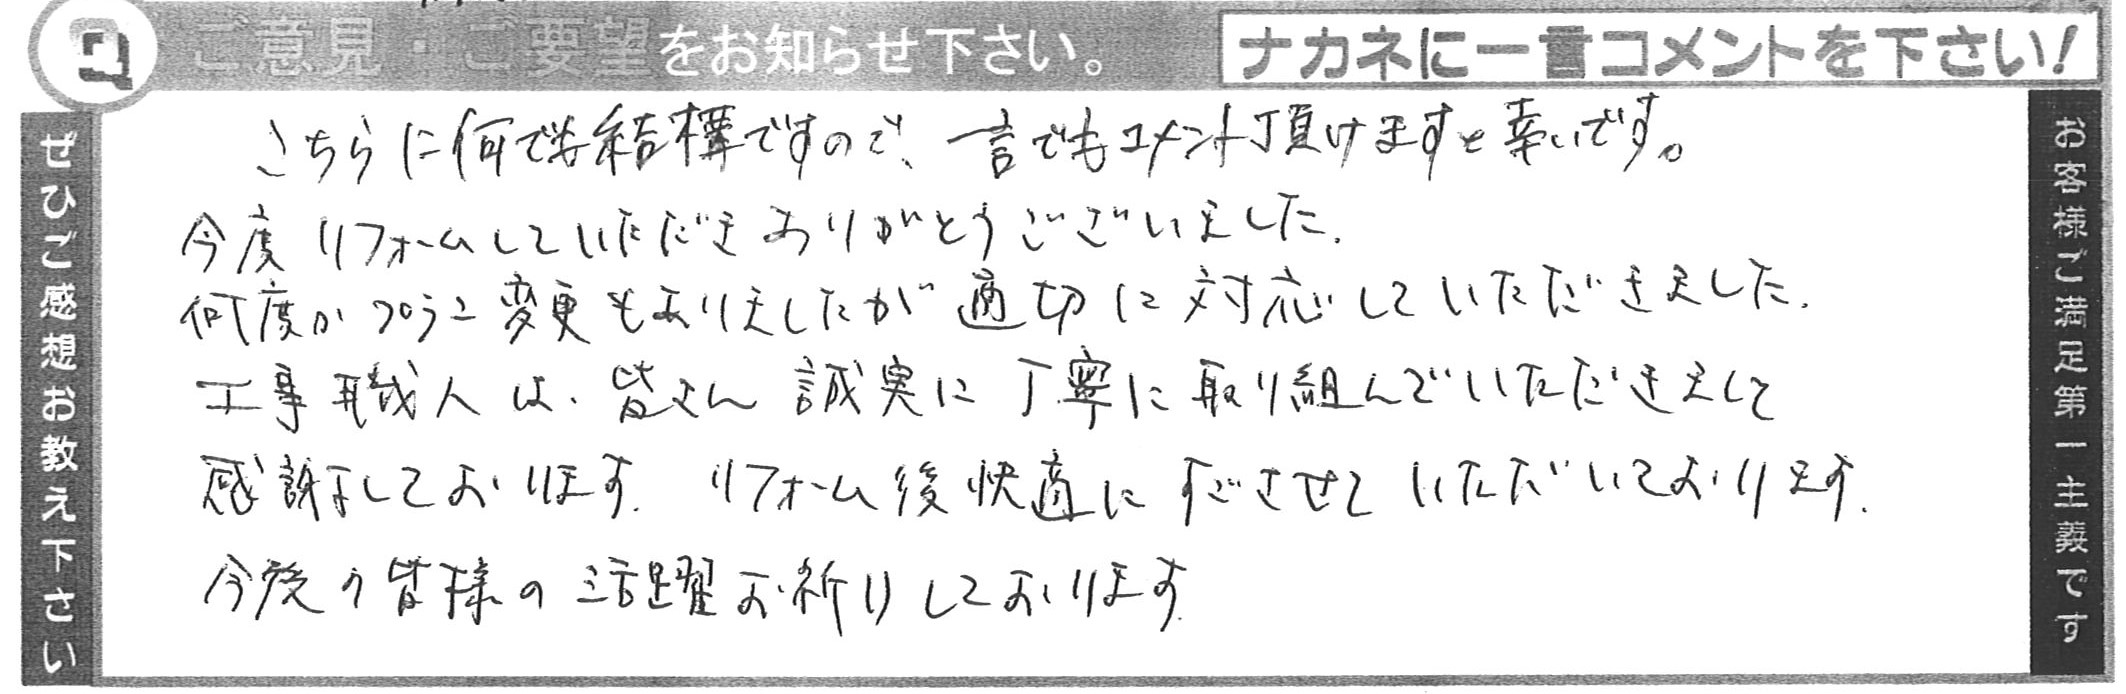 Q ご意見・ご要望をお知らせ下さい。
ナカネに一言コメントを下さい!
ぜひご感想お教え下さい
こちらに何でも結構ですので、一言でもコメント頂けますと幸いです。
今度リフォームしていただきありがとうございました.
何度かプラン変更もありましたが適切に対応していただきました.
工事職人は、皆さん誠実に丁寧に取り組んでいただきまして
感謝しております. リフォーム後快適にすごさせていただいております.
今後の皆様の活躍お祈りしております.
お客様ご満足第一主義です